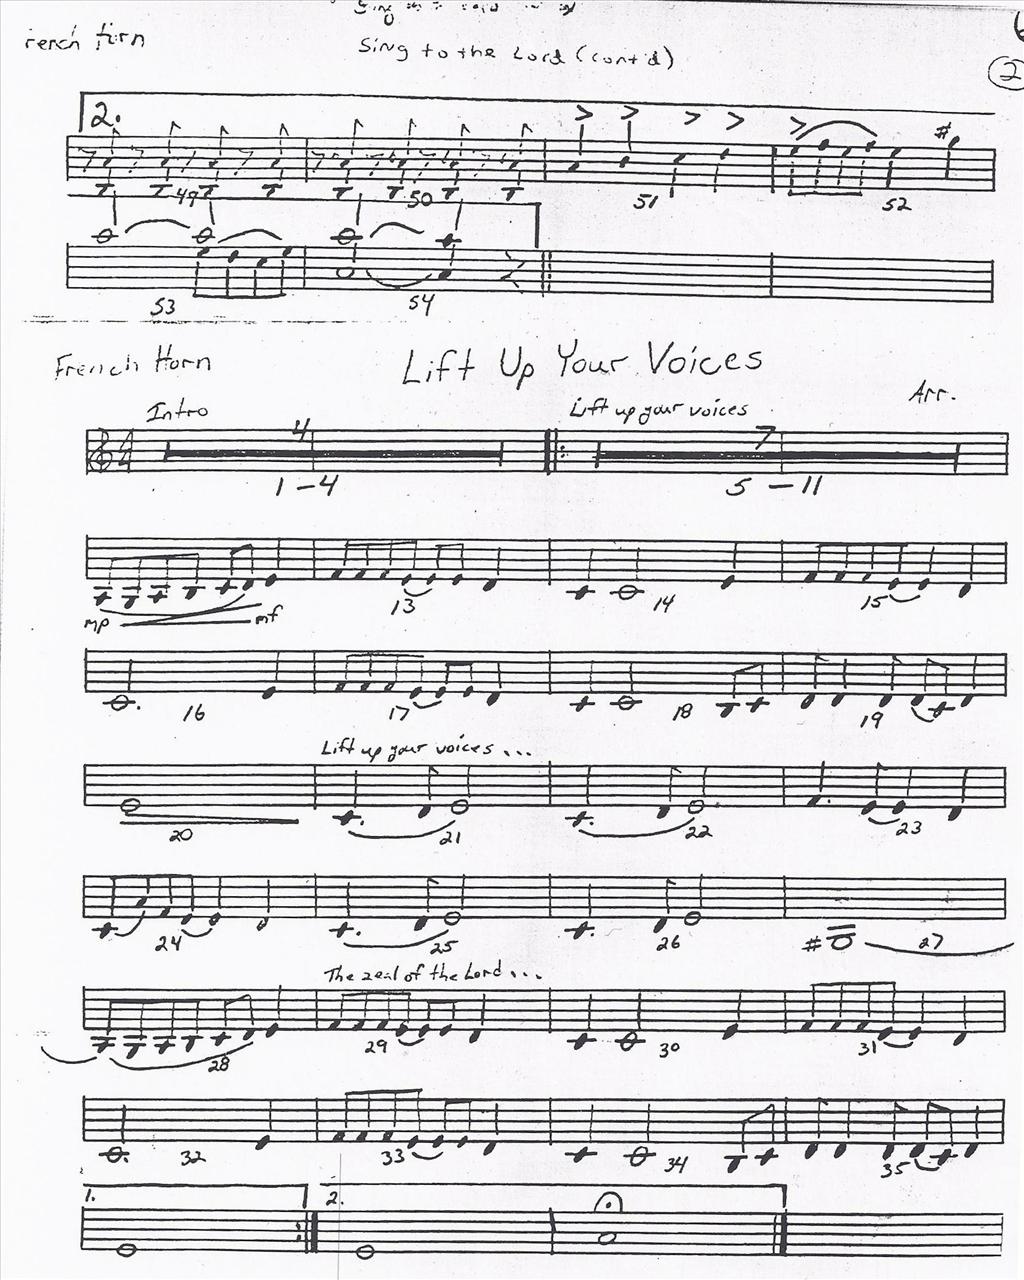 rench Horn
Sing to the Lord (cont'd)
2
2.
49 50 51 52
53 54
French Horn
Lift Up Your Voices
Arr.
Intro
Lift up your voices
4 4 4 7
1-4 5-11
13 14 15
mp mf
16 17 18 19
Lift up your voices ...
20 21 22 23
24 25 26 27
The zeal of the Lord ...
28 29 30 31
32 33 34 35
1. 2.